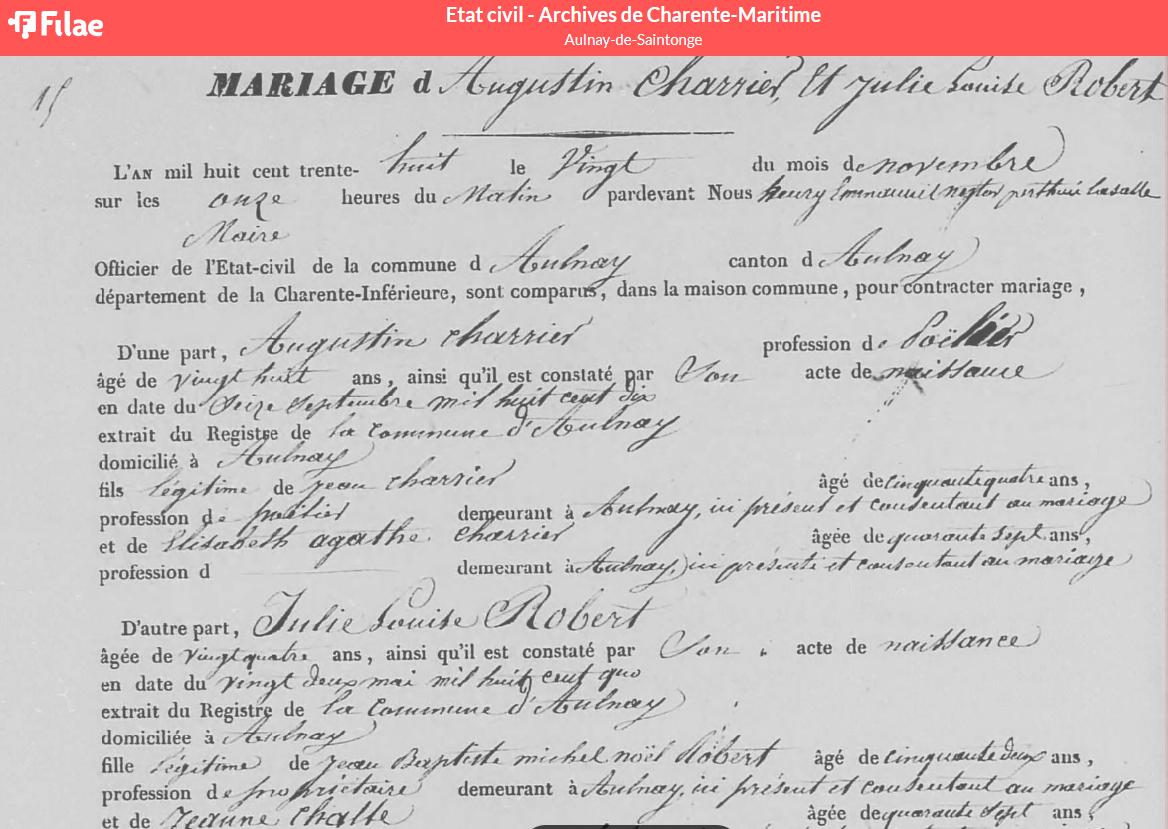 Filae
Etat civil - Archives de Charente-Maritime
Aulnay-de-Saintonge
15
MARIAGE d Augustin Charrier, Et Julie Louise Robert
L'AN mil huit cent trente-huit le Vingt du mois de novembre
sur les onze heures du Matin pardevant Nous henry Emmanuel nestor perthuis lasalle
Maire
Officier de l'Etat-civil de la commune d Aulnay canton d Aulnay
département de la Charente-Inférieure, sont comparus, dans la maison commune, pour contracter mariage,
D'une part, Augustin Charrier profession de Poëlier
âgé de vingt huit ans, ainsi qu'il est constaté par Son acte de naissance
en date du Seize Septembre mil huit cent dix
extrait du Registre de la Commune d'Aulnay
domicilié à Aulnay
fils légitime de jean charrier âgé de cinquante quatre ans,
profession de poëlier demeurant à Aulnay, ici présent et consentant au mariage
et de Elisabeth agathe charrier âgée de quarante Sept ans,
profession d demeurant à Aulnay, ici présente et consentant au mariage
D'autre part, Julie Louise Robert
âgée de vingt quatre ans, ainsi qu'il est constaté par Son acte de naissance
en date du vingt deux mai mil huit cent
extrait du Registre de la Commune d'Aulnay
domiciliée à Aulnay
fille légitime de jean Baptiste michel noël Robert âgé de cinquante deux ans,
profession de propriétaire demeurant à Aulnay, ici présent et consentant au mariage
et de Jeanne Chatte âgée de quarante Sept ans,